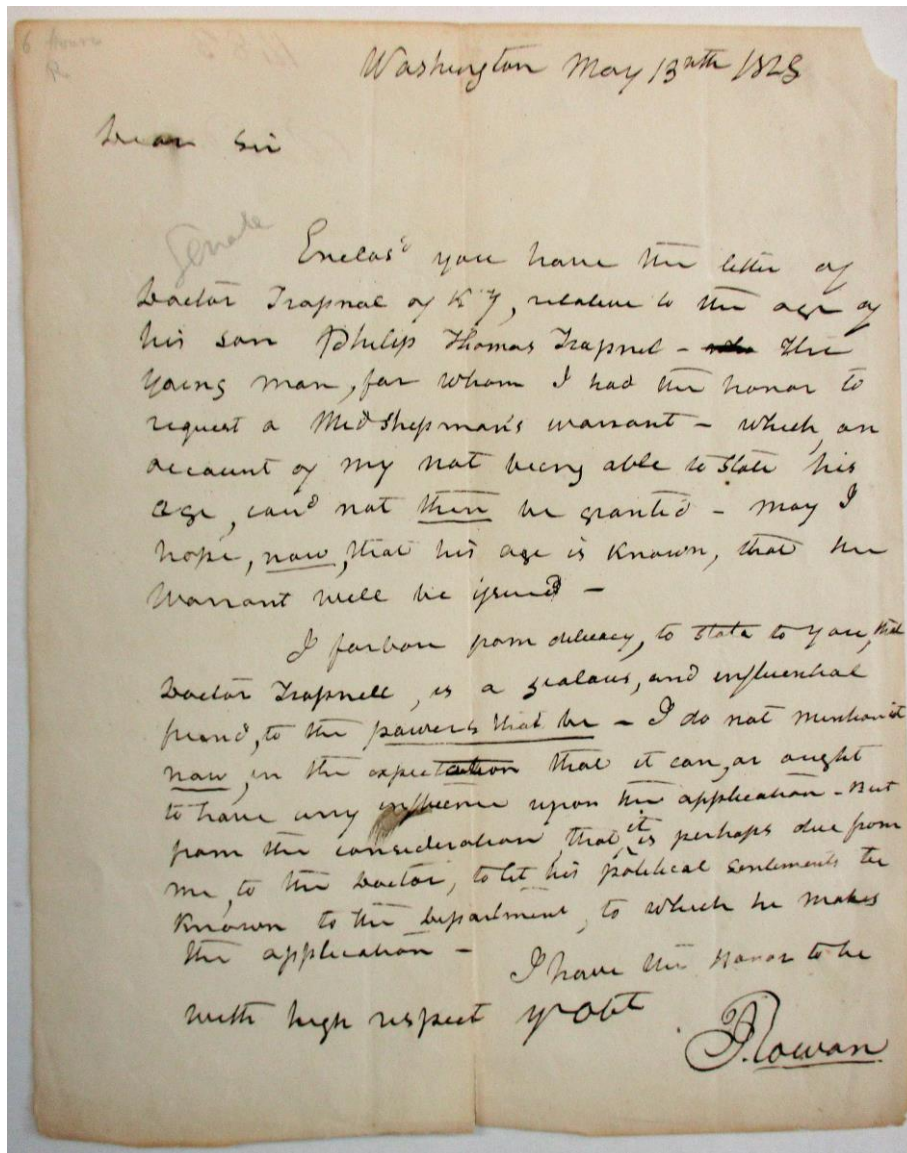 6 hours
R
Washington May 13nth 1828
Dear Sir
Senate
Enclosd you have the letter of
Doctor Trapnal of KY, relative to the age of
his son Philip Thomas Trapnel - The
young man, for whom I had the honor to
request a Midshipman's warrant - which, on
account of my not being able to state his
age, coud not then be granted - May I
hope, now, that his age is known, that the
Warrant will be issued -
I forbore from delicacy, to state to you, that
Doctor Trapnell, is a zealous, and influential
friend, to the powers that be - I do not mention it
now, in the expectation that it can, or ought
to have any influence upon the application - But
from the consideration, that it is perhaps due from
me, to the Doctor, to let his political sentiments be
known to the Department, to which he makes
the application -
I have the Honor to be
with high respect yr obt
J. Rowan